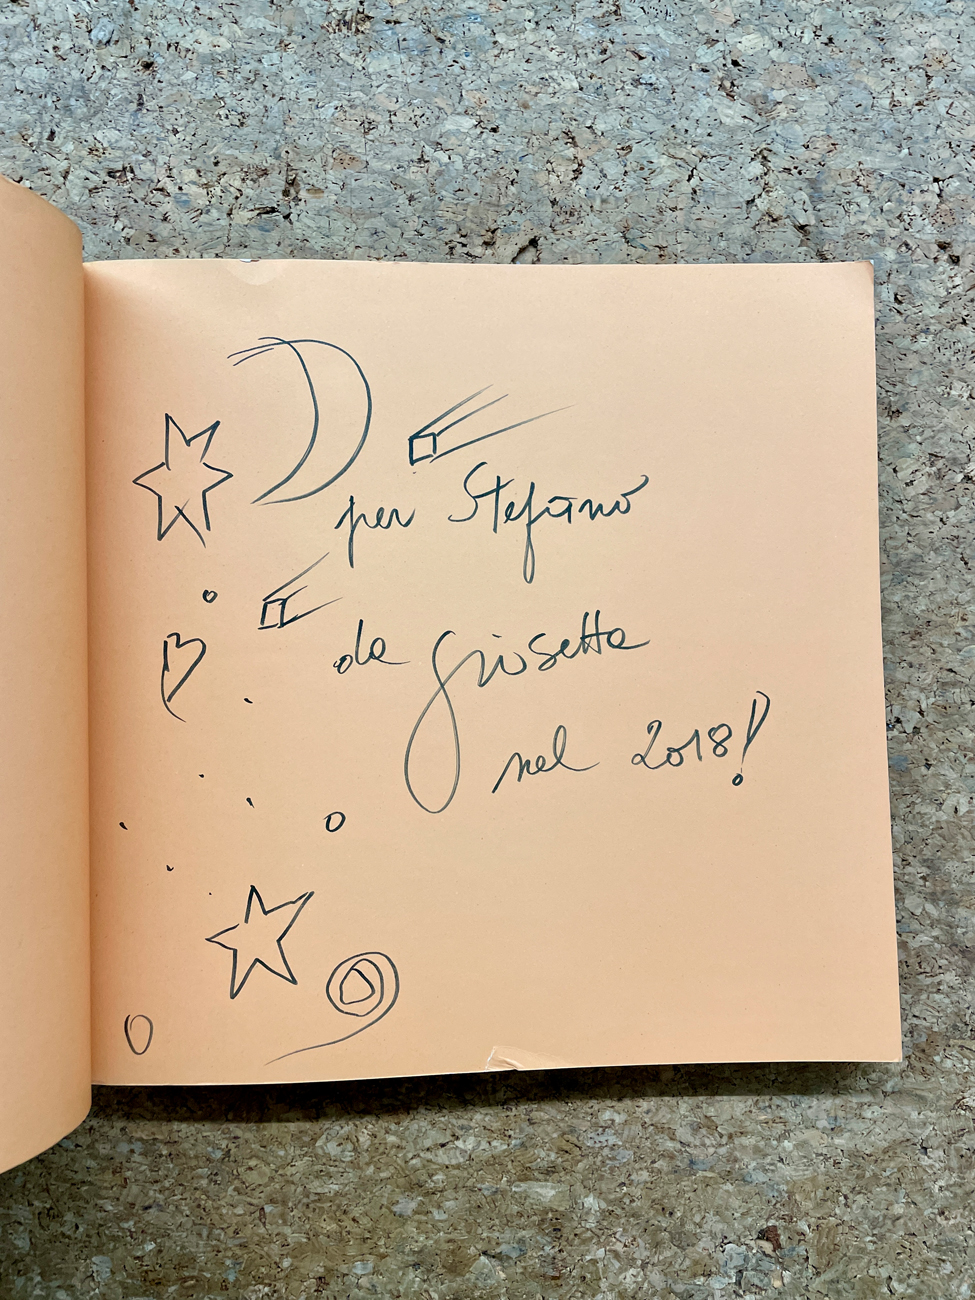 per Stefano
da Giosetta
nel 2018!